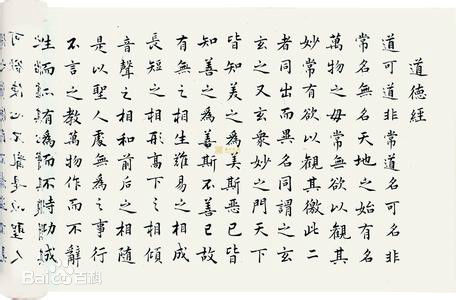 道德經
道可道非常道名可名非
常名無名天地之始有名
萬物之母常無欲以觀其
妙常有欲以觀其徼此二
者同出而異名同謂之玄
玄之又玄衆妙之門天下
皆知美之為美斯惡已皆
知善之為善斯不善已故
有無之相生難易之相成
長短之相形高下之相傾
音聲之相和前后之相隨
是以聖人處無為之事行
不言之教萬物作而不辭
而不有為而不恃功成
Baidu百科